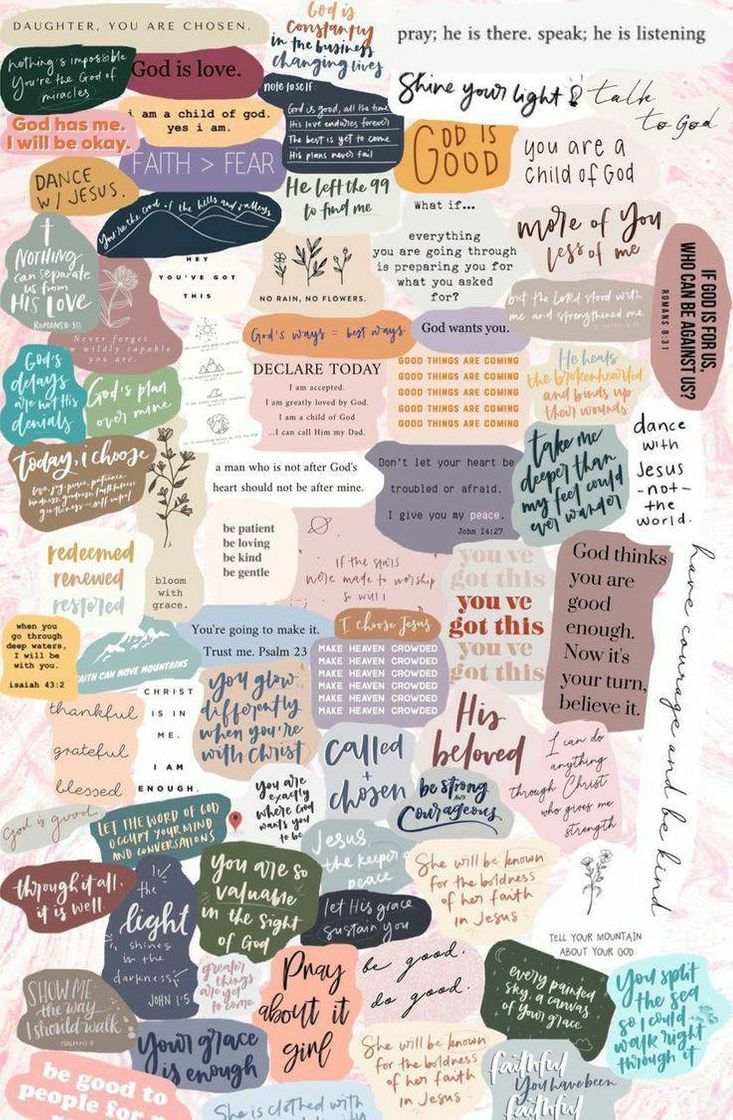 DAUGHTER, YOU ARE CHOSEN.
God is
constantly
in the business
changing lives
pray; he is there. speak; he is listening
nothing's impossible
You're the God of
miracles
God is love.
note to self:
God is good, all the time
His love endures forever
The best is yet to come
His plans never fail
Shine your light
talk
to God
God has me.
I will be okay.
i am a child of god.
yes i am.
GOD IS
GOOD
you are a
child of God
FAITH > FEAR
DANCE
W/ JESUS.
He left the 99
to find me
what if...
everything
you are going through
is preparing you for
what you asked
for?
more of You
less of me
You're the God of the hills and valleys
NOTHING
can separate
us from
HIS LOVE
ROMANS 8:38
HEY
YOU'VE GOT
THIS
NO RAIN, NO FLOWERS.
IF GOD IS FOR US,
WHO CAN BE AGAINST US?
ROMANS 8:31
but the Lord stood with
me and strengthened me
Never forget
wildly capable
you are.
God's ways = best ways
God wants you.
God's
delays
are not His
denials
God's plan
over mine
DECLARE TODAY
I am accepted.
I am greatly loved by God.
I am a child of God
...I can call Him my Dad.
GOOD THINGS ARE COMING
GOOD THINGS ARE COMING
GOOD THINGS ARE COMING
GOOD THINGS ARE COMING
GOOD THINGS ARE COMING
He heals
the brokenhearted
and binds up
their wounds
today, i choose
love, joy, peace, patience
kindness, goodness, faithfulness
gentleness
a man who is not after God's
heart should not be after mine.
Don't let your heart be
troubled or afraid.
I give you my peace.
John 14:27
take me
deeper than
my feet could
ever wander
dance
with
Jesus
-not-
the
world.
redeemed
renewed
restored
bloom
with
grace.
be patient
be loving
be kind
be gentle
if the stars
were made to worship
so will I
you've
got this
you've
got this
you've
got this
God thinks
you are
good
enough.
Now it's
your turn,
believe it.
have courage and be kind
when you
go through
deep waters,
I will be
with you.
isaiah 43:2
FAITH CAN MOVE MOUNTAINS
You're going to make it.
Trust me. Psalm 23
I choose Jesus
MAKE HEAVEN CROWDED
MAKE HEAVEN CROWDED
MAKE HEAVEN CROWDED
MAKE HEAVEN CROWDED
MAKE HEAVEN CROWDED
thankful
grateful
blessed
CHRIST
IS IN
ME.
I AM
ENOUGH.
you glow
differently
when you're
with Christ
His
beloved
called
+
chosen
I can do
anything
through Christ
who gives me
strength
you are
exactly
where God
wants you
to be
be strong
& Courageous
God is good
LET THE WORD OF GOD
OCCUPY YOUR MIND
AND CONVERSATIONS
Jesus
the keeper of
peace
She will be known
for the boldness
of her faith
in Jesus
through it all,
it is well.
the
light
shines
in the
darkness
JOHN 1:5
you are so
valuable
in the sight
of God
let His grace
sustain you
TELL YOUR MOUNTAIN
ABOUT YOUR GOD
SHOW ME
the way
I should walk
greater
things
are yet
to come
Pray
about it
girl
be good.
do good.
every painted
sky, a canvas
of your grace
You split
the sea
so I could
walk right
through it
Your grace
is enough
She will be known
for the boldness
of her faith
in Jesus
faithful
You have been
faithful
be good to
people for
She is clothed with